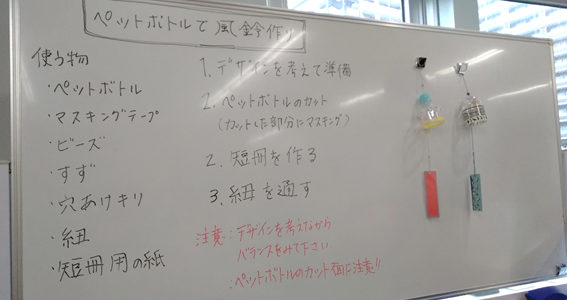 ペットボトルで風鈴作り
使う物
・ペットボトル
・マスキングテープ
・ビーズ
・すず
・穴あけキリ
・紐
・短冊用の紙
1. デザインを考えて準備
2. ペットボトルのカット
(カットした部分にマスキング)
2. 短冊を作る
3. 紐を通す
注意：デザインを考えながら
バランスをみて下さい
・ペットボトルのカット面に注意!!